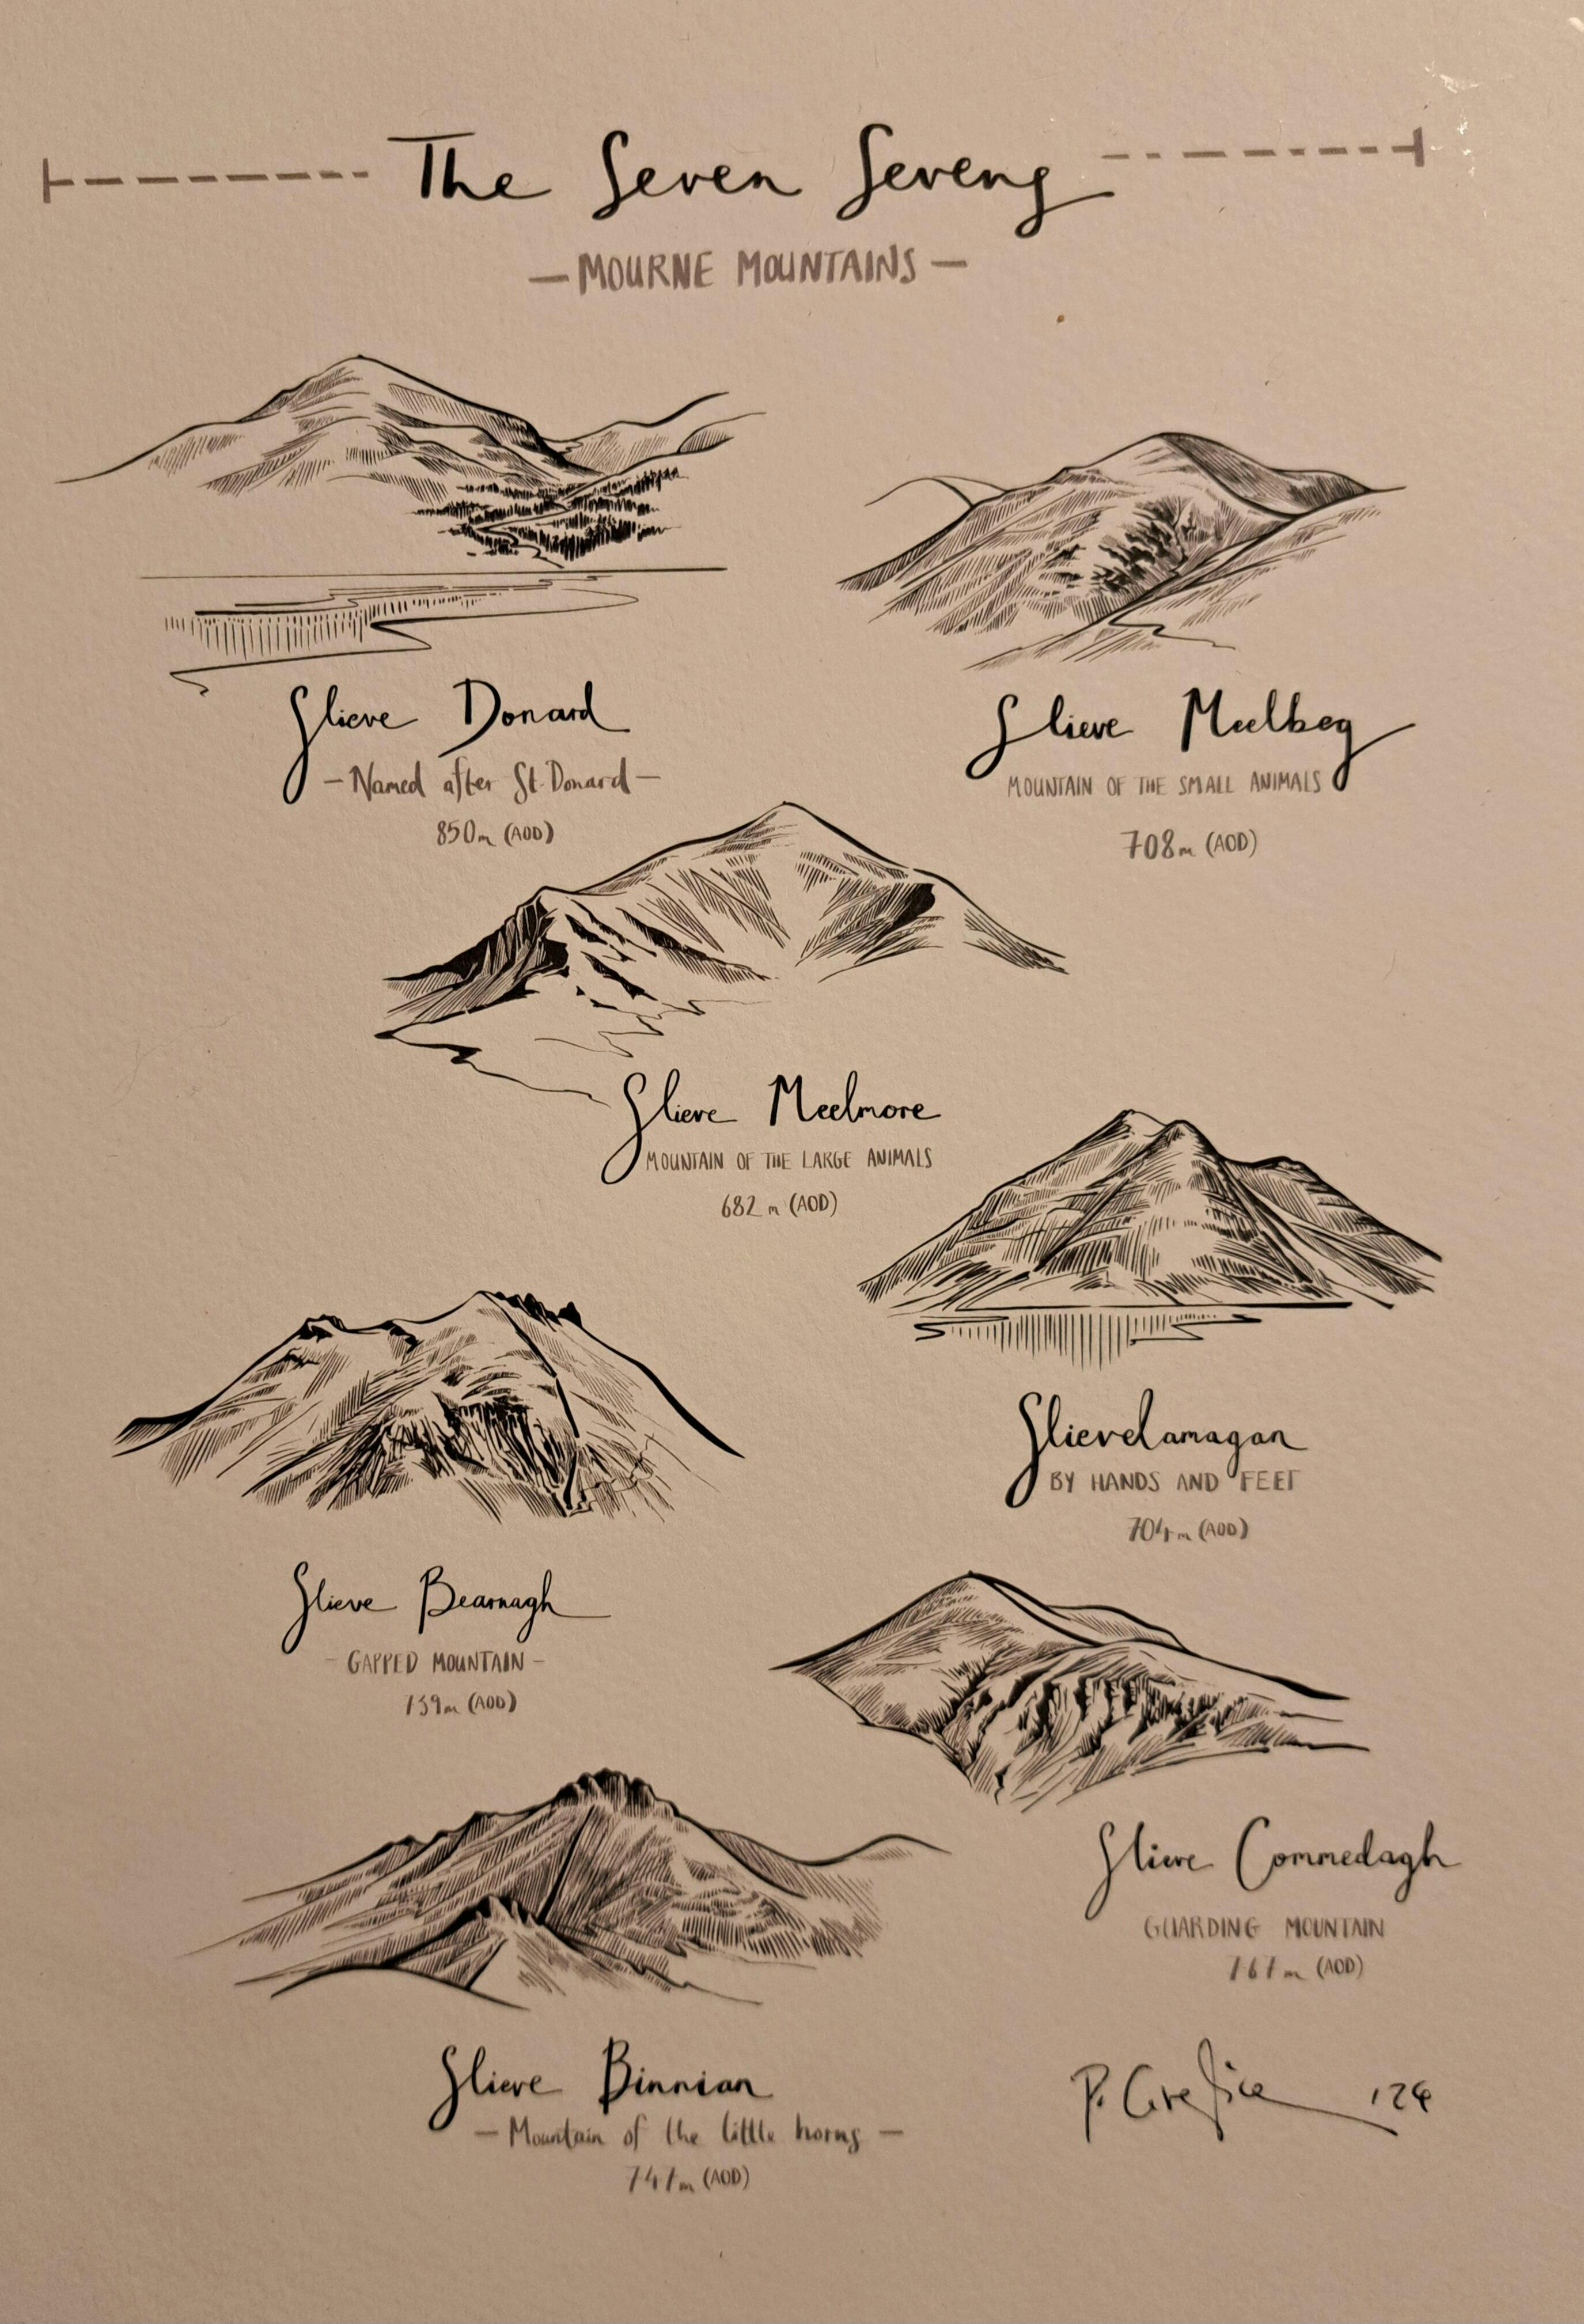 The Seven Sevens
— MOURNE MOUNTAINS —
Slieve Donard
— Named after St. Donard —
850m (AOD)
Slieve Meelbeg
MOUNTAIN OF THE SMALL ANIMALS
708m (AOD)
Slieve Meelmore
MOUNTAIN OF THE LARGE ANIMALS
682m (AOD)
Slievelamagan
BY HANDS AND FEET
704m (AOD)
Slieve Bearnagh
- GAPPED MOUNTAIN -
739m (AOD)
Slieve Commedagh
GUARDING MOUNTAIN
767m (AOD)
Slieve Binnian
— Mountain of the little horns —
747m (AOD)
P.